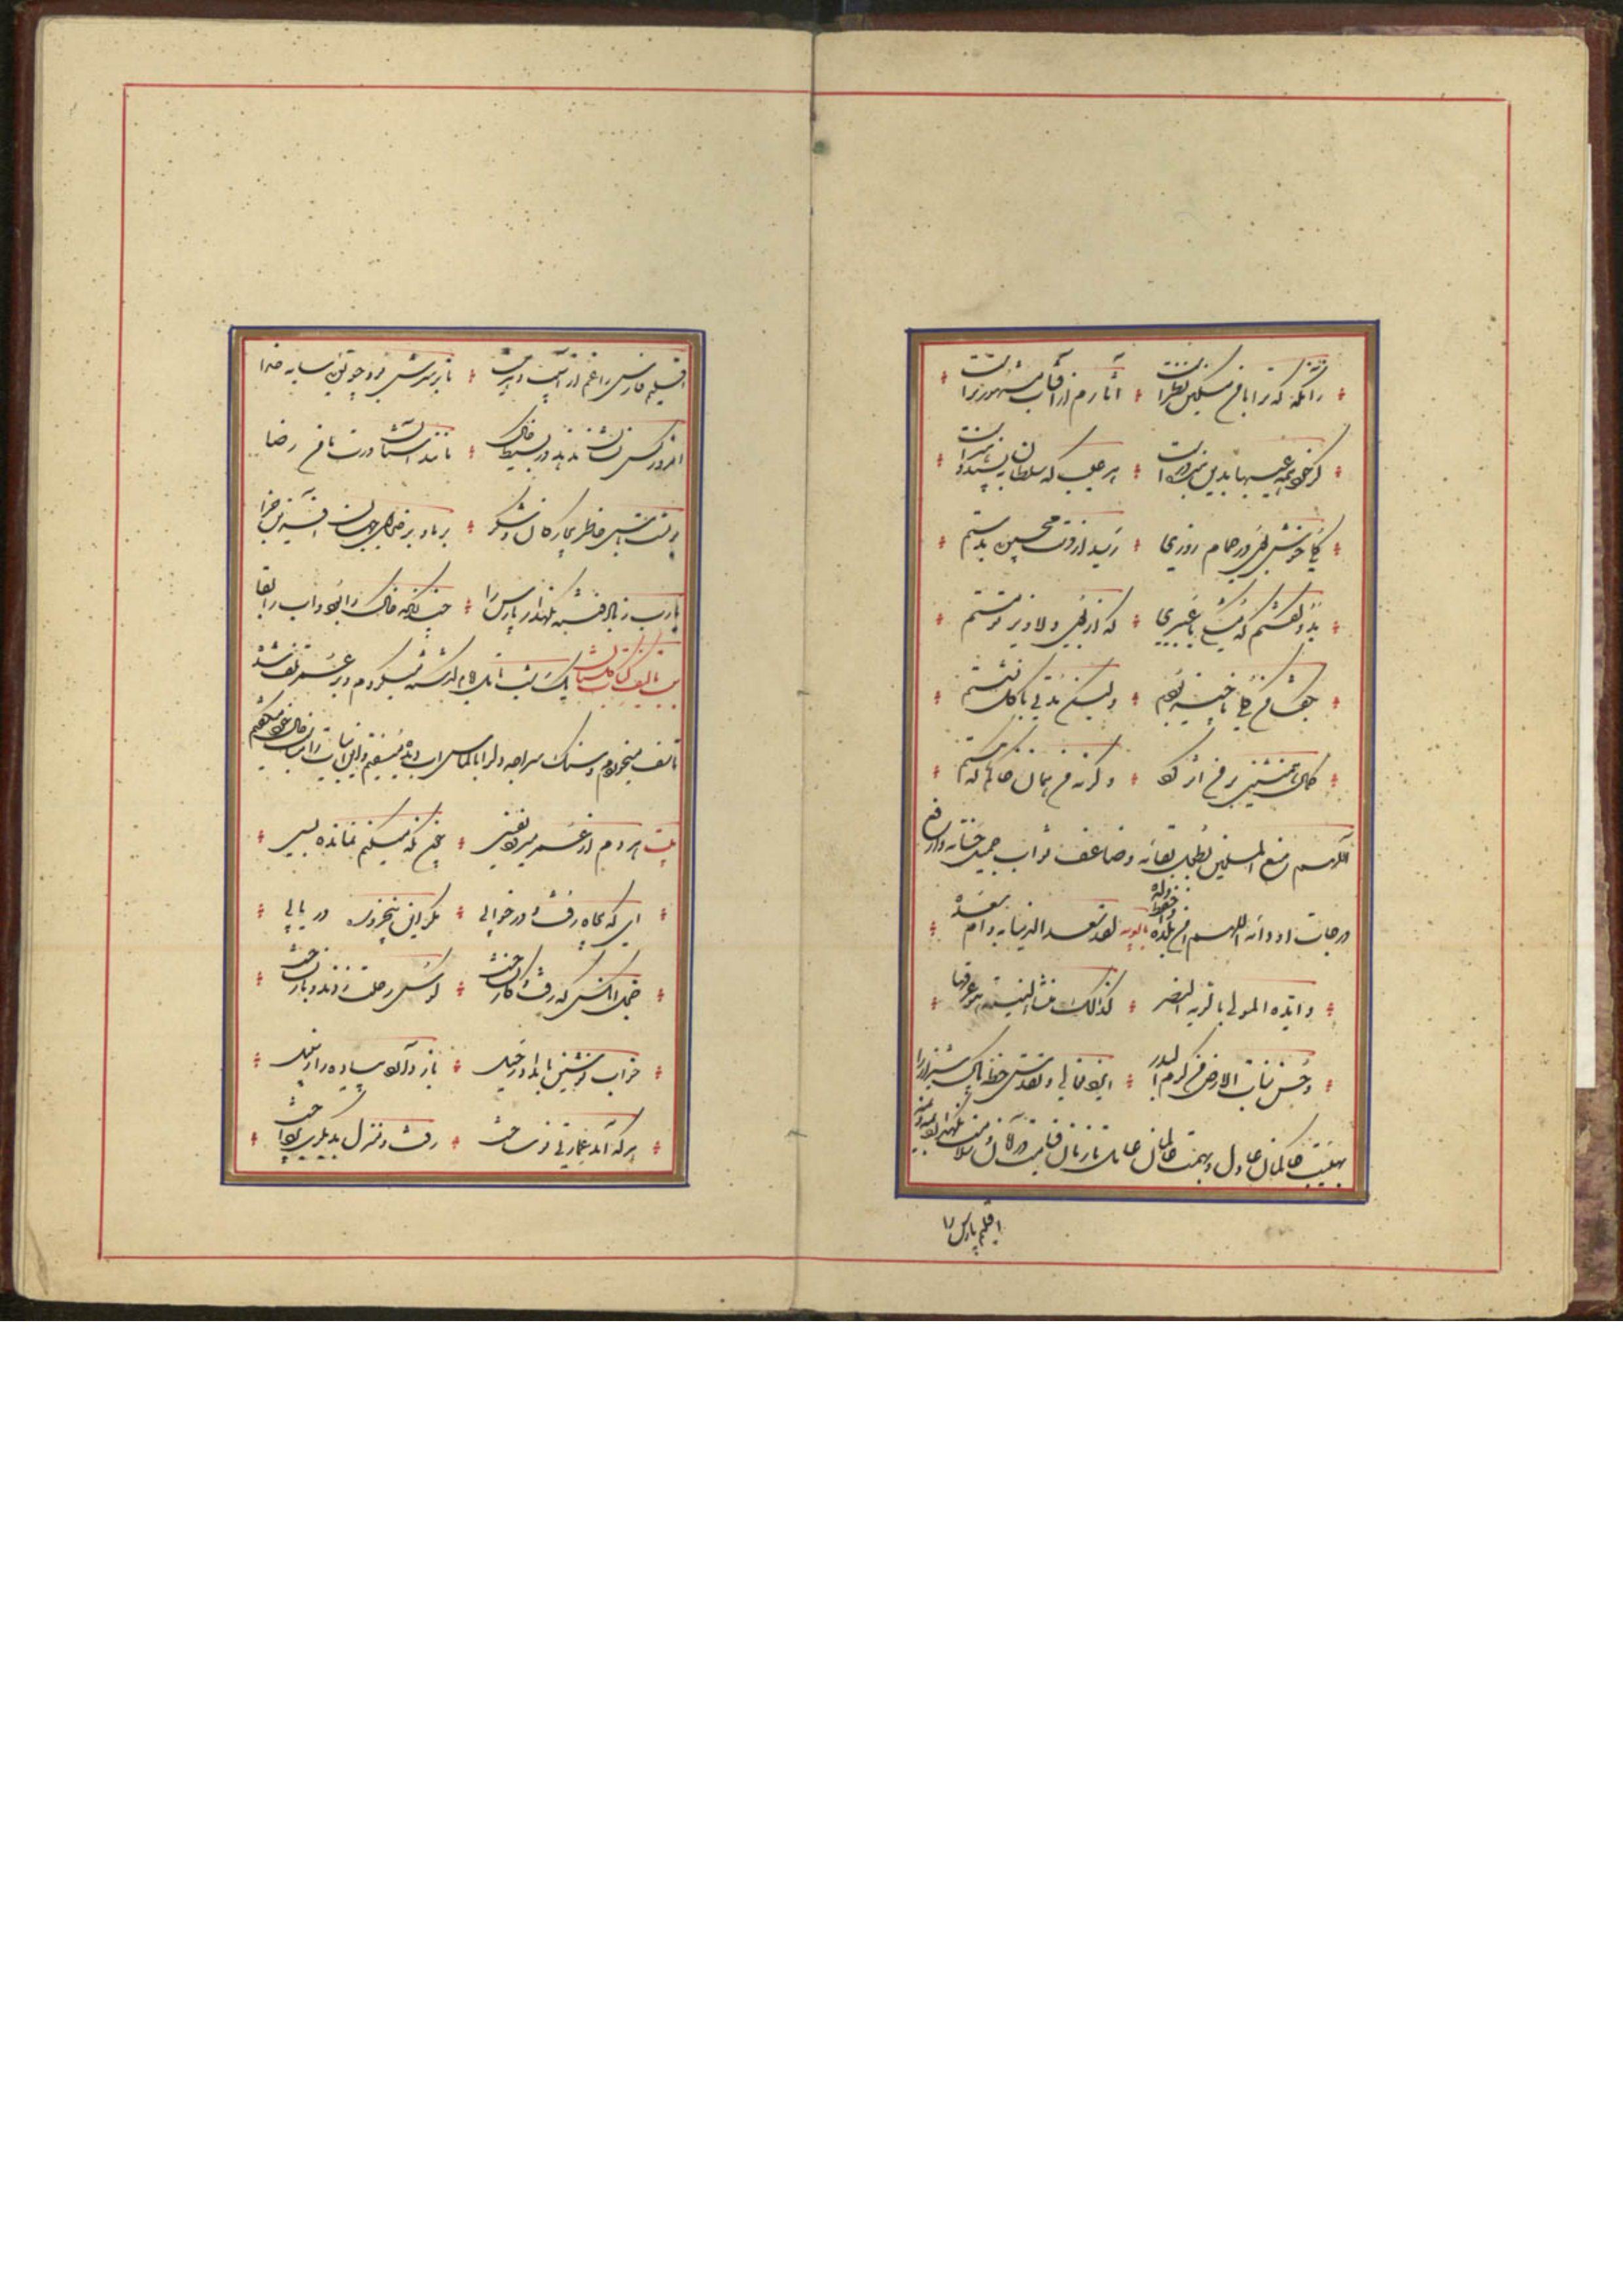 زانگه که ترا بر من مسکین نظر است آثارم از آفتاب مشهورتر است
گر خود همه عیبها بدین بنده در است هر عیب که سلطان بپسندد هنر است
گلی خوشبوی در حمام روزی رسید از دست محبوبی بدستم
بدو گفتم که مشکی یا عبیری که از بوی دلاویز تو مستم
بگفتا من گلی ناچیز بودم ولیکن مدتی با گل نشستم
کمال همنشین بر من اثر کرد وگرنه من همان خاکم که هستم
اللهم متع المسلمین بطول بقائه وضاعف ثواب جمیل حسناته وارفع
درجات اودائه اللهم آمن بلده واحفظ ولده لقد سعد الدنیا به دام سعده
وایده المولی بالویه النصر کذلک تنشأ لینة هو عرقها
وحسن نبات الارض من کرم البذر ایزد تعالی و تقدس خطه پاک شیراز را
بهیبت حاکمان عادل و همت عالمان عامل تا زمان قیامت در امان و سلامت نگهدارد
اقلیم پارس را
اقلیم فارس را غم از آسیب دهر نیست تا بر سرش بود چو توئی سایه خدا
امروز کس نشان ندهد در بسیط خاک مانند آستان درت مأمن رضا
بر تست پاس خاطر بیچارگان و شکر بر ما و بر خدای جهان آفرین جزا
یارب ز باد فتنه نگهدار پارس را چندانکه خاک را بود و آب را بقا
تالیف کتاب گلستان یک شب تأمل ایام گذشته میکردم و بر عمر تلف شده
تاسف میخوردم و سنگ سراچه دل را بالماس آب دیده میسفتم و این ابیات مناسب حال خود میگفتم
هر دم از عمر میرود نفسی چون نگه میکنم نمانده بسی
ای که پنجاه رفت و در خوابی مگر این پنجروزه دریابی
خجل آنکس که رفت و کار نساخت کوس رحلت زدند و بار نساخت
خواب نوشین بامداد رحیل باز دارد پیاده را ز سبیل
هر که آمد عمارتی نو ساخت رفت و منزل بدیگری پرداخت